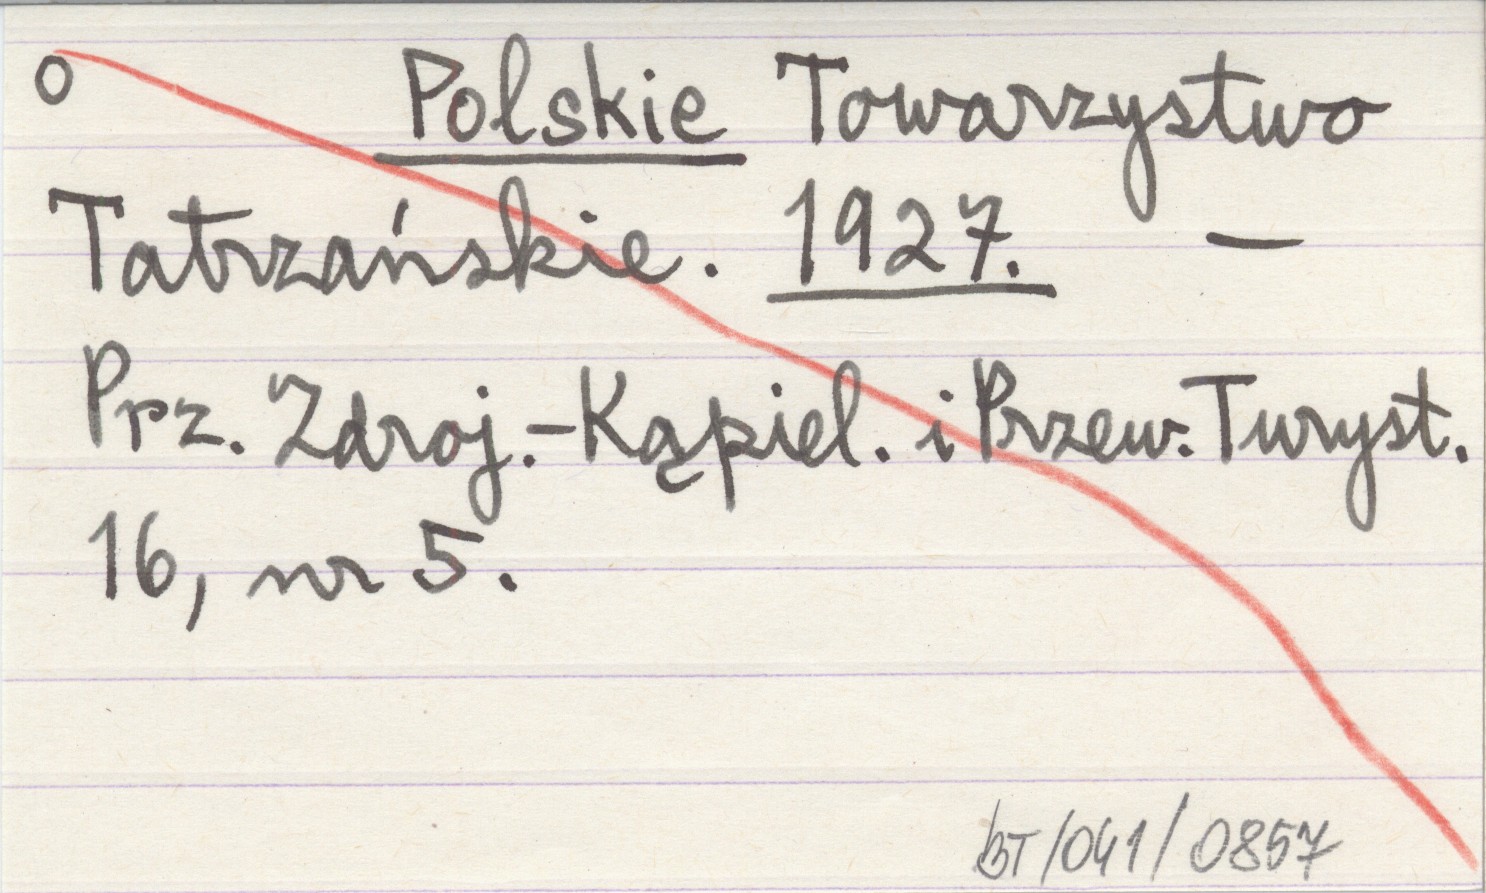 O Polskie Towarzystwo
Tatrzańskie. 1927. —
Prz. Zdroj.-Kąpiel. i Przew. Turyst.
16, nr 5.
BT/041/0857